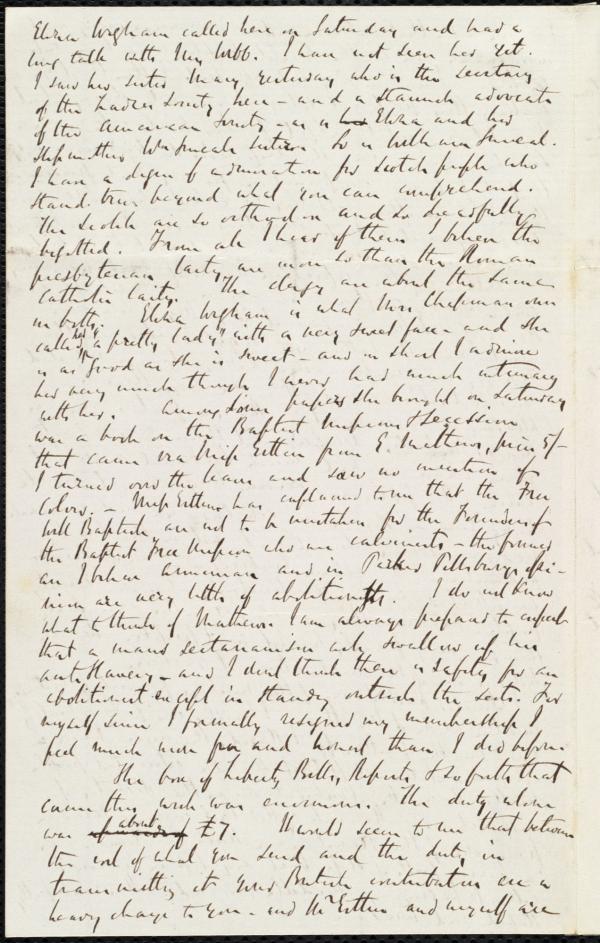 Eliza Wigham called here on Saturday and had a
long talk with Mr Webb. I have not seen her yet.
I saw her sister Mary yesterday who is the secretary
of the Ladies Society here - and a staunch advocate
of the American Society - as is her Eliza and her
stepmother Wm Smeals sister. So is William Smeal.
I have a degree of admiration for Scotch people who
stand true beyond what you can comprehend.
The Scotch are so orthodox and so dreadfully
bigotted. From all I hear of them I believe the
presbyterian laity are more so than the Roman
Catholic laity. The clergy are about the same
in both. Eliza Wigham is what Mrs Chapman once
called her "a pretty lady" with a very sweet face - and she
is as good as she is sweet - and in short I admire
her very much though I never had much intimacy
with her. Among some papers she brought on Saturday
was a book on the Baptist Missions & Secession
that came via Miss Estlin from E. Mathews, price 5/-
I turned over the leaves and saw no mention of
Colver. - Miss Estlin has explained to me that the Free
Will Baptists are not to be mistaken for the Founders of
the Baptist Free Mission who are calvinists - the former
are I believe arminian and in Parker Pillsburys opi-
nion are very little of abolitionists. I do not know
what to think of Mathews. I am always prepared to expect
that a mans sectarianism will swallow up his
anti slavery - and I dont think there is safety for an
abolitionist except in standing outside the sects. For
myself since I formally resigned my membership I
feel much more free and honest than I did before
The box of Liberty Bells, Reports & so forth that
came this week was enormous. The duty alone
was about £7. It would seem to me that between
the cost of what you send and the duty, in
transmitting it your British contributors are a
heavy charge to you - and Mr Estlin and myself are